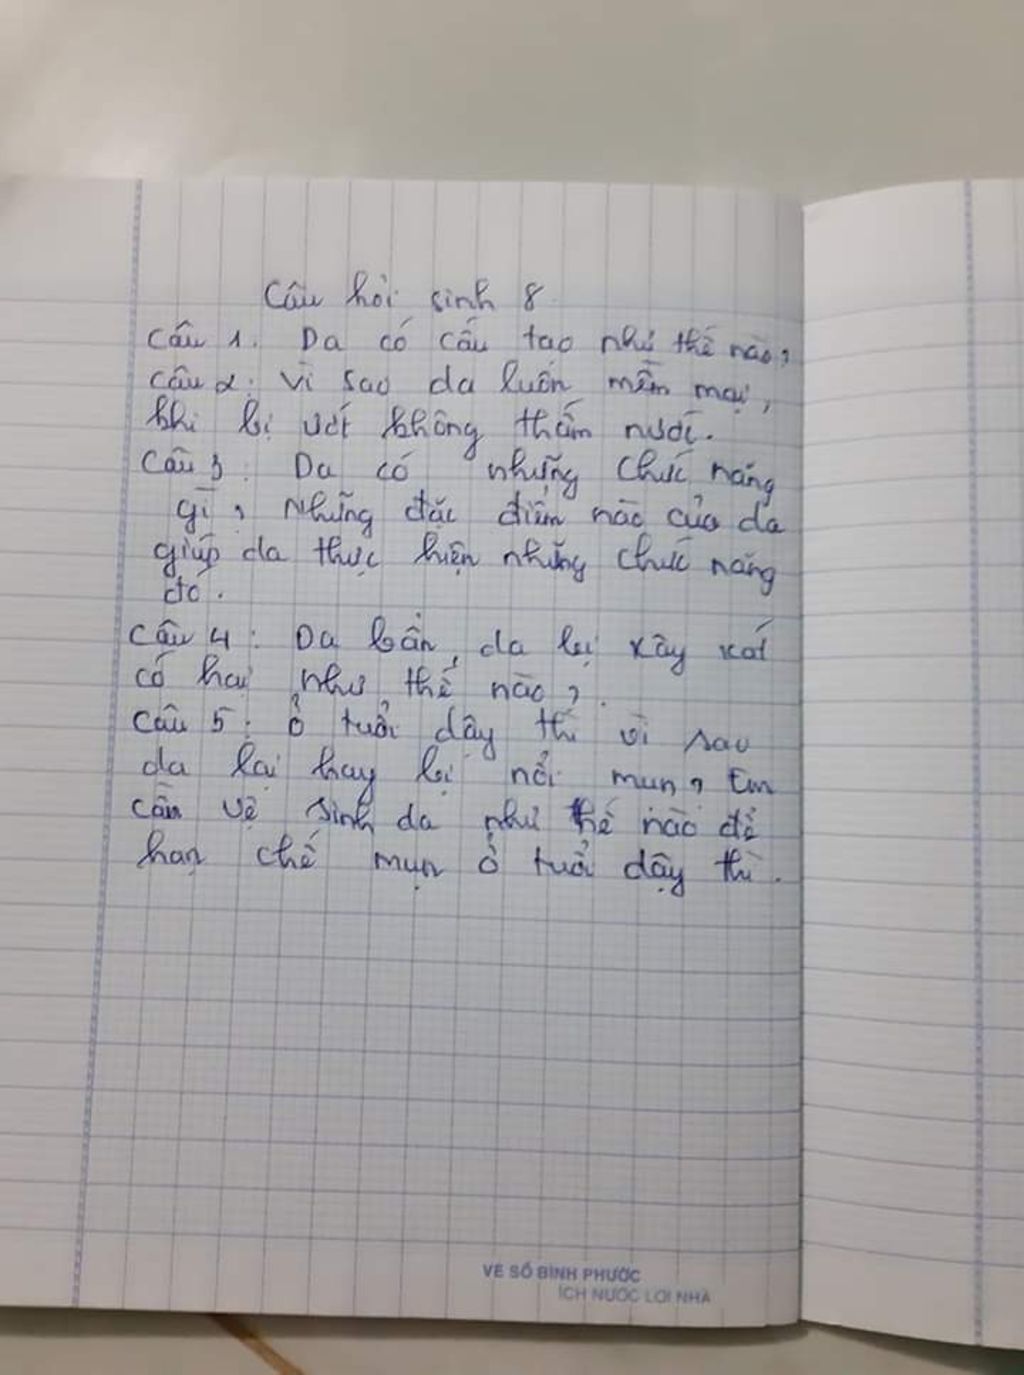 Câu hỏi sinh 8
Câu 1. Da có cấu tạo như thế nào?
Câu 2: Vì sao da luôn mềm mại,
khi bị ướt không thấm nước.
Câu 3: Da có những chức năng
gì? Những đặc điểm nào của da
giúp da thực hiện những chức năng
đó.
Câu 4: Da bẩn, da bị xây xát
có hại như thế nào?
Câu 5: Ở tuổi dậy thì vì sao
da lại hay bị nổi mụn? Em
cần vệ sinh da như thế nào để
hạn chế mụn ở tuổi dậy thì.
VÉ SỐ BÌNH PHƯỚC
ÍCH NƯỚC LỢI NHÀ